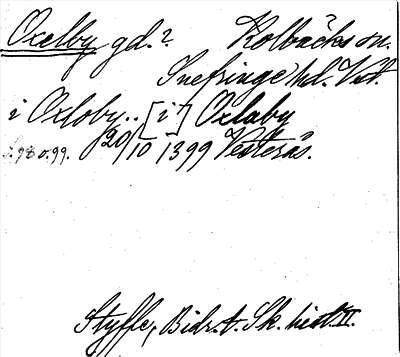 Oxelby gd.? Kolbäcks sn.
Snefringe hd. Vstm.
i Oxloby.. [i] Oxlaby
s. 98 o. 99. 20/10 1399 Vesterås.
Styffe, Bidr. t. Sk. hist. II.